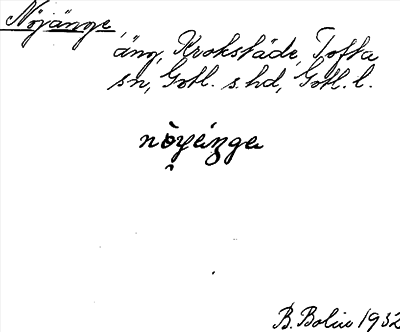 Nöjänge,
äng, Krokstäde, Tofta
sn, Gotl. s. hd, Gotl. l.
nòyei̯nge
B. Bolin 1932